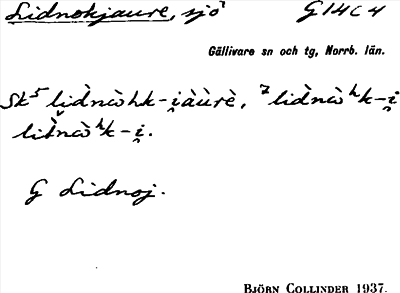 Lidnokjaure, sjö G14C4
Gällivare sn och tg, Norrb. län.
Sk⁵ lìd̀nàhk-i̯àùrè, ⁷lìd̀nàʰk-i̯
lìt̀nàʰk-i̯.
G Lidnoj.
BJÖRN COLLINDER 1937.